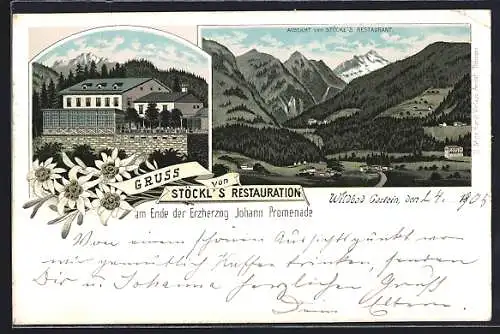 AUSSICHT VON STÖCKL'S RESTAURANT.
GRUSS
von
STÖCKL'S RESTAURATION
am Ende der Erzherzog Johann Promenade
Wildbad Gastein, den 14. 1905
Von einem schönen Aussichtspunkt wo
wir gemütlich Kaffee trinken, senden
Dir u. Johanna herzlichen Gruß
Dein Eltern.